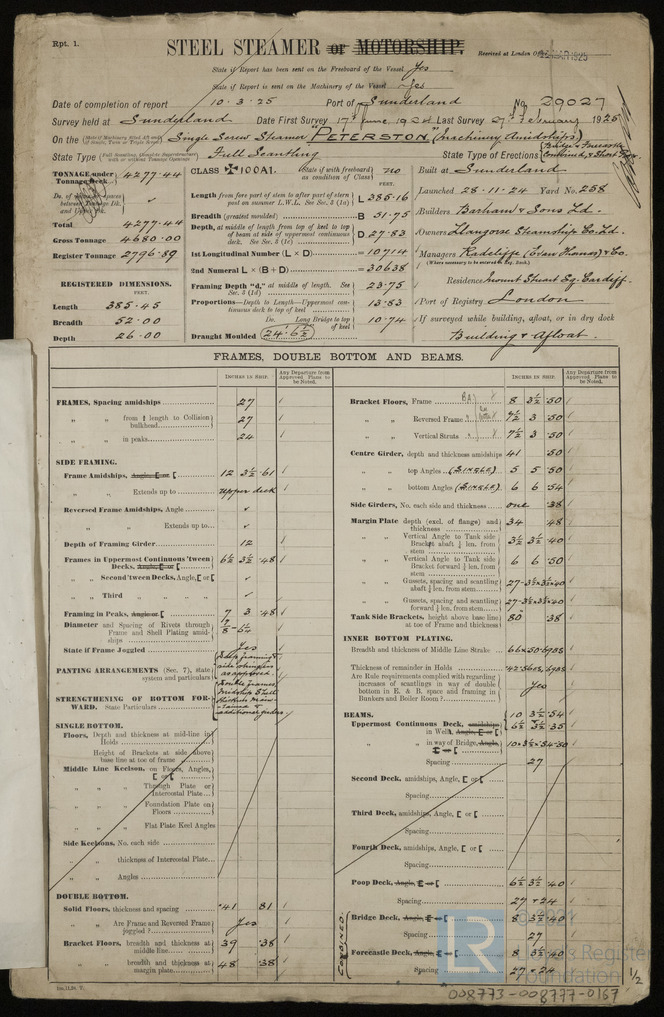 Rpt. 1.
STEEL STEAMER or MOTORSHIP.
Received at London Office
State if Report has been sent on the Freeboard of the Vessel Yes
State if Report is sent on the Machinery of the Vessel Yes
Date of completion of report 10.3.25 Port of Sunderland No. 29027
Survey held at Sunderland Date First Survey 17th June 1924 Last Survey 27th February 1925
On the Single Screw Steamer "PETERSTON" (Machinery Amidships)
State Type Full Scantling State Type of Erections
TONNAGE under Tonnage Deck 4277.44
Total 4277.44
Gross Tonnage 4680.00
Register Tonnage 2796.89
REGISTERED DIMENSIONS.
FEET.
Length 385.45
Breadth 52.00
Depth 26.00
CLASS ✠100A1. State if with freeboard as condition of Class no
FEET.
Length from fore part of stem to after part of stern post on summer L.W.L. See Sec. 3 (1a) L 385.16
Breadth (greatest moulded) B 51.75
Depth, at middle of length from top of keel to top of beam at side of uppermost continuous deck. See Sec. 3 (1c) D 27.83
1st Longitudinal Number (L × D) = 10714
2nd Numeral L × (B + D) = 30638
Framing Depth "d," at middle of length. See Sec. 3 (1d) 23.75
Proportions—Depth to Length—Uppermost continuous deck to top of keel 13.83
Do. Long Bridge to top of keel 10.74
Draught Moulded 24'.6½
Built at Sunderland
Launched 28.11.24 Yard No. 258
Builders Bartram & Sons Ld.
Owners Llangorse Steamship Co. Ld.
Managers Radcliffe (Evan Thomas) & Co.
(Where necessary to be entered in Reg. Book.)
Residence Mount Stuart Sq. Cardiff.
Port of Registry London
If surveyed while building, afloat, or in dry dock
Building & Afloat.
FRAMES, DOUBLE BOTTOM AND BEAMS.
INCHES IN SHIP.
Any Departure from Approved Plans to be Noted.
INCHES IN SHIP.
Any Departure from Approved Plans to be Noted.
FRAMES, Spacing amidships 27
" " from ¼ length to Collision bulkhead 27
" " in peaks 24
SIDE FRAMING.
Frame Amidships, Angle, E or [ 12 3½ .61
" " Extends up to Upper deck
Reversed Frame Amidships, Angle ✓
" " Extends up to ✓
Depth of Framing Girder 12
Frames in Uppermost Continuous 'tween Decks, Angle, E or [ 6½ 3½ .48
" " Second 'tween Decks, Angle, [ or [ ✓
" " Third " " " ✓
Framing in Peaks, Angle or [ 7 3 .48
Diameter and Spacing of Rivets through Frame and Shell Plating amidships
State if Frame Joggled Yes
PANTING ARRANGEMENTS (Sec. 7), state system and particulars
STRENGTHENING OF BOTTOM FORWARD. State Particulars
SINGLE BOTTOM.
Floors, Depth and thickness at mid-line in Holds
Height of Brackets at side above base line at toe of frame
Middle Line Keelson, on Floors, Angles, [ or [
" " Through Plate or Intercostal Plate
" " Foundation Plate on Floors
" " Flat Plate Keel Angles
Side Keelsons, No. each side
" " thickness of Intercostal Plate
" " Angles
DOUBLE BOTTOM.
Solid Floors, thickness and spacing .41 81
" " Are Frame and Reversed Frame joggled? Yes
Bracket Floors, breadth and thickness at middle line 39 .38
" " breadth and thickness at margin plate 48 .38
Bracket Floors, Frame 8 3½ .50
" " Reversed Frame 7½ 3 .50
" " Vertical Struts 7½ 3 .50
Centre Girder, depth and thickness amidships 41 .50
" " top Angles (SINGLE) 5 5 .50
" " bottom Angles (SINGLE) 6 6 .54
Side Girders, No. each side and thickness one .38
Margin Plate depth (excl. of flange) and thickness 34 .48
" " Vertical Angle to Tank side Bracket abaft ¼ len. from stem 3½ 3½ .40
" " Vertical Angle to Tank side Bracket forward ¼ len. from stem 6 6 .50
" " Gussets, spacing and scantling abaft ¼ len. from stem 27-3½×3½×.40
" " Gussets, spacing and scantling forward ¼ len. from stem 27-3½×3½×.40
Tank Side Brackets, height above base line at toe of Frame and thickness 80 .38
INNER BOTTOM PLATING.
Breadth and thickness of Middle Line Strake
Thickness of remainder in Holds
Are Rule requirements complied with regarding increases of scantlings in way of double bottom in E. & B. space and framing in Bunkers and Boiler Room? Yes
BEAMS.
Uppermost Continuous Deck, amidships in Wells, Angle, E or [ 10 3½ .54
6½ 3½ .35
" " in way of Bridge, Angle, E or [
Spacing 27
Second Deck, amidships, Angle, [ or [
Spacing
Third Deck, amidships, Angle, [ or [
Spacing
Fourth Deck, amidships, Angle, [ or [
Spacing
Poop Deck, Angle, E or [ 6½ 3½ .40
Spacing 27 & 24
COMBINED
Bridge Deck, Angle, E or [ 8 3½ .40
Spacing 27
Forecastle Deck, Angle, E or [ 8 3½ .40
Spacing 27 & 24
LR
Lloyd's Register
Foundation
1/2
008773-008777-0167